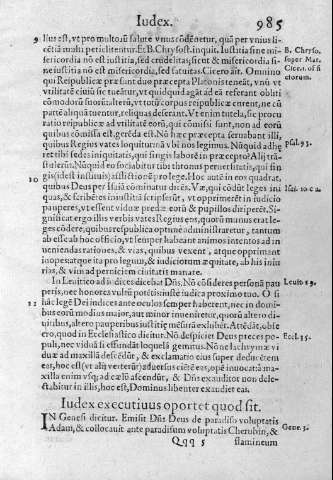 Iudex. 985
9 lius est, vt pro multorũ salute vnus cõdẽnetur, quã per vnius li-
cẽtiã multi periclitentur. Et B. Chrysost. inquit. Iustitia sine mi- B. Chryso.
sericordia nõ est iustitia, sed crudelitas; sicut & misericordia si- super Mat.
ne iustitia nõ est misericordia, sed fatuitas. Cicero ait. Omnino Cice. 1. of fi
qui Reipublicæ præsunt duo præcepta Platonis teneãt, vnũ vt ciorum.
vtilitatẽ ciuiũ sic tueãtur, vt quidquid agãt ad eã referant obliti
cõmodorũ suorũ: alterũ, vt totũ corpus reipublicæ curent, ne cũ
partẽ aliquã tueantur, reliquas deserant. Vt enim tutela, sic procu
ratio reipublicæ ad vtilitatẽ eorũ, qui cõmissi sunt, non ad eorũ
quibus cõmissa est, gerẽda est. Nõ hæc præcepta seruabant illi,
quibus Regius vates loquitur: nã vbi nos legimus. Nũquid adhę psal. 93.
ret tibi sedes iniquitatis, qui fingis laborẽ in præcepto? Alij trãs
tulerũt. Nũquid cõsociabitur tibi thronus peruersitatis, qui fin-
10 gis (idest instituis) afflictionẽ pro lege. Hoc autẽ in eos quadrat,
quibus Deus per Isaiã cõminatur dicẽs. Væ, qui cõdũt leges ini Isai. 10
quas, & scribẽtes iniustitiã scripserũt, vt opprimerẽt in iudicio
pauperes, vt essent viduæ prædæ eorũ & pupillos diriperẽt. Si-
gnificat ergo illis verbis vates Regius eos, quorũ manus erat le-
ges cõdere, quibus respublica optime administraretur, tantum
ab esse ab hoc officio, vt semper habeant animos intentos ad in
ueniendas rationes, & vias, quibus vexent, atque opprimant
inopes: atque ita pro leguũ, & iudiciorum æquitate, ab his iniu
rias, & vim ad perniciem ciuitatis manare.
In Leuitico ad iudices dicebat Dñs. Nõ cõsideres personã pau Leuit. 19.
peris, nec honores vultũ potẽtis: iuste iudica proximo tuo. O si
11 hãc legẽ Dei iudices ante oculos semper haberent, nec in domi-
bus eorũ modius maior, aut minor inueniretur, quorũ altero di-
uitibus, altero pauperibus iustitię mẽsurã exhibẽt. Attẽdãt, obse
cro, quod in Ecclesiastico dicitur. Nõ despiciet Deus preces po- Eccl. 35.
puli, nec viduã si effundat loquelã gemitus. Nõ ne lachrymæ vi
duæ ad maxillã descẽdũt, & exclamatio eius super deducẽtem
eas, hoc est (vt alij vertũt) aduersus ciẽtẽ eas, opẽ inuocãt: à ma-
xilla enim vsq; ad cælũ ascendũt, & Dñs exauditor non dele-
ctabitur in illis, hoc est, Dominus libenter exaudiet eas.
Iudex executiuus oportet quod sit.
IN Genesi dicitur. Emisit Dñs Deus de paradiso voluptatis
Adam, & collocauit ante paradisum voluptatis Cherubin, & Gene. 3.
Qqq 5 flamineum